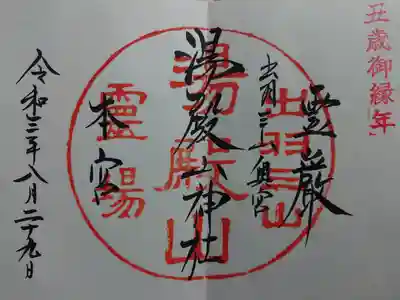 丑歳御縁年
霊巌
出羽三山奥宮
湯殿山神社
本宮
令和三年八月二十九日
出羽三山
湯殿山
靈湯